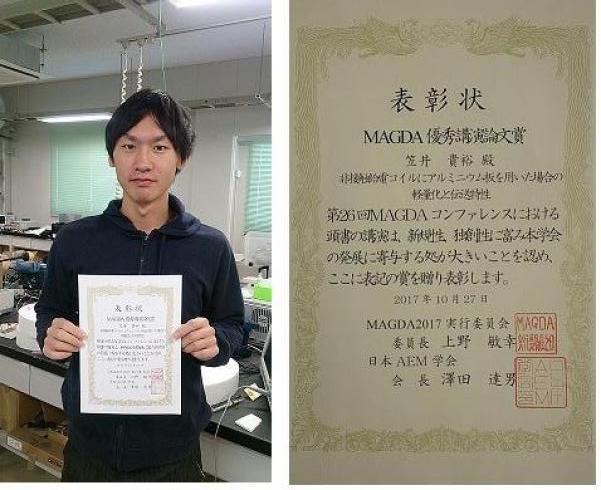 表彰状
MAGDA優秀講演論文賞
笠井 貴裕 殿
非接触給電コイルにアルミニウム板を用いた場合の
軽量化と伝送特性
第26回MAGDAコンファレンスにおける
頭書の講演は、新規性、独創性に富み本学会
の発展に寄与する処が大きいことを認め、
ここに表記の賞を贈り表彰します。
2017年10月27日
MAGDA2017 実行委員会
委員長 上野 敏幸
日本AEM学会
会長 澤田 達男
表彰状
MAGDA優秀講演論文賞